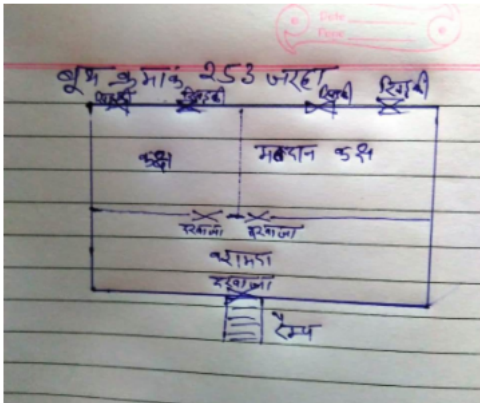 Date
बूथ क्रमांक 253 जरहा
खिड़की खिड़की खिड़की खिड़की
कक्ष मतदान कक्ष
दरवाजा दरवाजा
बरामदा
दरवाजा
रैम्प